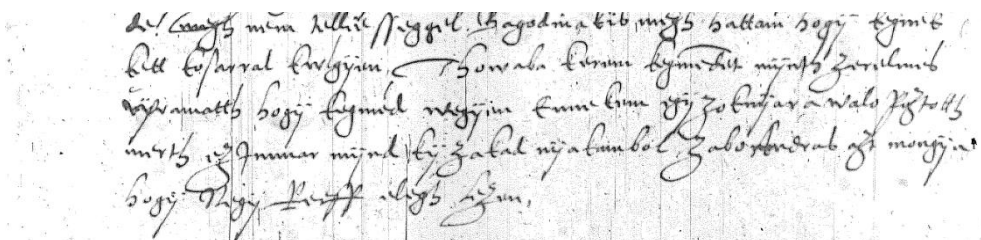 de wegh nem tellyessseggel. Hagodmakis megh hattam hogÿ kegmek
kett kosarral kwlgyen, Thowaba kerem kegmedet mynth zerelmes
vÿramatth hogÿ kegmed wegÿen Ennekem egÿ zoknÿara walo poztoth
merth ez Immar mÿnd kÿ zakad nÿakambol zabo Andras azt mongÿa
hogÿ Negÿ Reeff elegh lezen,